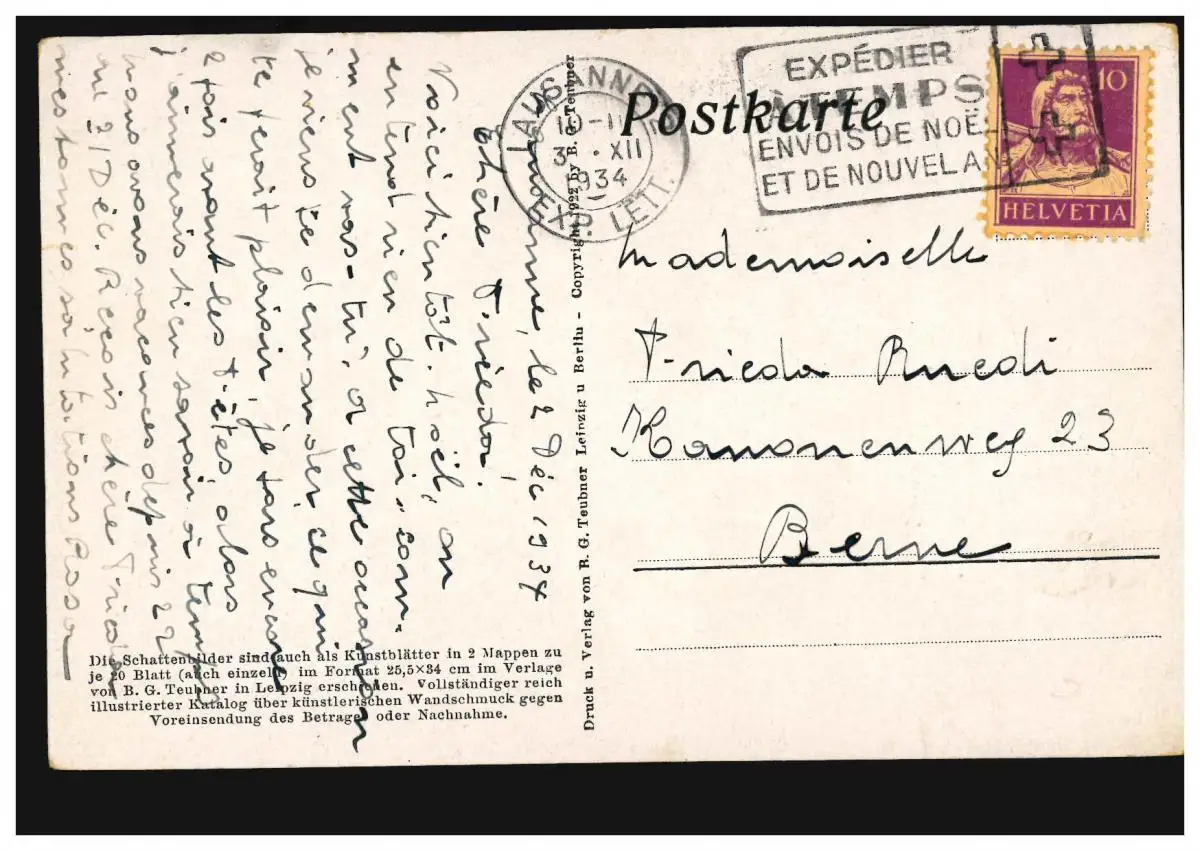 Postkarte
EXPÉDIER
À TEMPS
ENVOIS DE NOËL
ET DE NOUVEL AN
LAUSANNE
10-11
3. XII
1934
EXP. LETT.
10
HELVETIA
Mademoiselle
Frieda Ruedi
Kanonenweg 23
Berne
Lausanne, le 2 Déc 1934
Chère Frieda!
Voici bientôt Noël, on
entend rien de toi, com-
ment vas-tu, a cette occasion
je viens te demander ce qui
te ferait plaisir, je fars
2 fois vant les Fêtes, alors
j'aimerais bien savoir à temps
nous avons vacances depuis 22
au 31 Déc. Reçois chère Frieda
mes bonnes salutations Rosa
Druck u. Verlag von B. G. Teubner Leipzig u Berlin - Copyright 1922 by B. G. Teubner
Die Schattenbilder sind auch als Kunstblätter in 2 Mappen zu
je 20 Blatt (auch einzeln) im Format 25,5×34 cm im Verlage
von B. G. Teubner in Leipzig erschienen. Vollständiger reich
illustrierter Katalog über künstlerischen Wandschmuck gegen
Voreinsendung des Betrages oder Nachnahme.